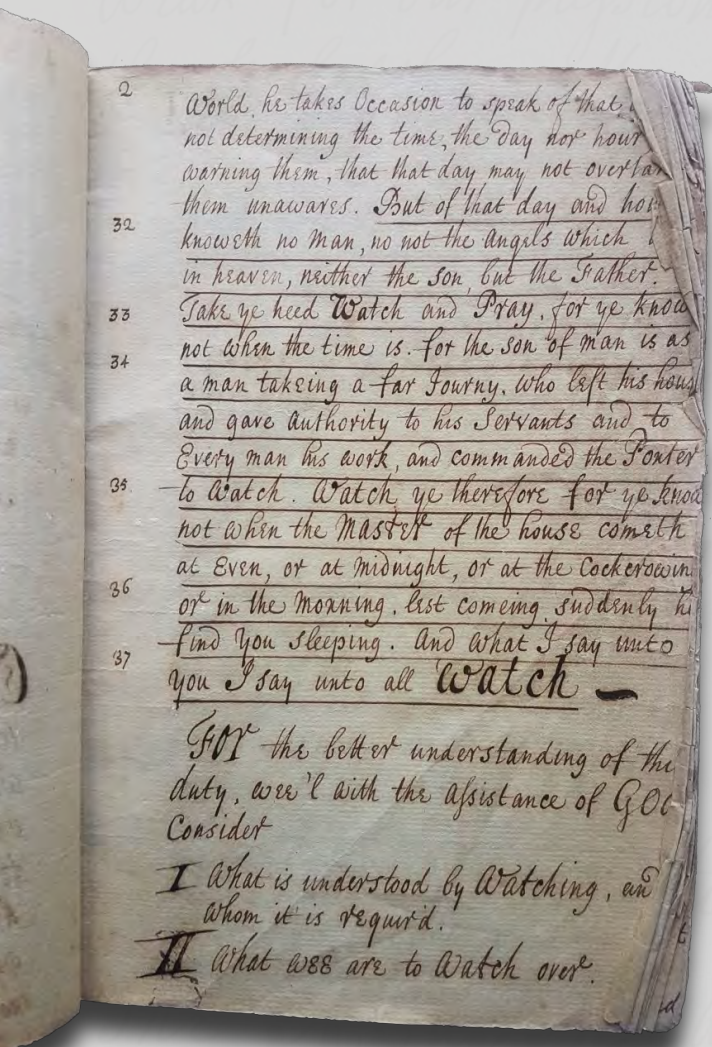 2
World, he takes Occasion to speak of that
not determining the time, the day nor hour
warning them, that that day may not overtak
them unawares. But of that day and hou
32
knoweth no man, no not the Angels which
in heaven, neither the son, but the Father.
33 Take ye heed Watch and Pray, for ye know
not when the time is. for the son of man is as
34
a man takeing a far Journy, who left his hous
and gave authority to his Servants and to
Every man his work, and commanded the Porter
35 to Watch. Watch ye therefore for ye know
not when the MASTER of the house cometh
at Even, or at midnight, or at the Cockcrowin
36
or in the Morning. lest comeing suddenly he
find you sleeping. And what I say unto
37
you I say unto all Watch —
FOR the better understanding of the
duty, wee'l with the assistance of GOD
Consider
I What is understood by Watching, an
whom it is requir'd.
II What wee are to Watch over.